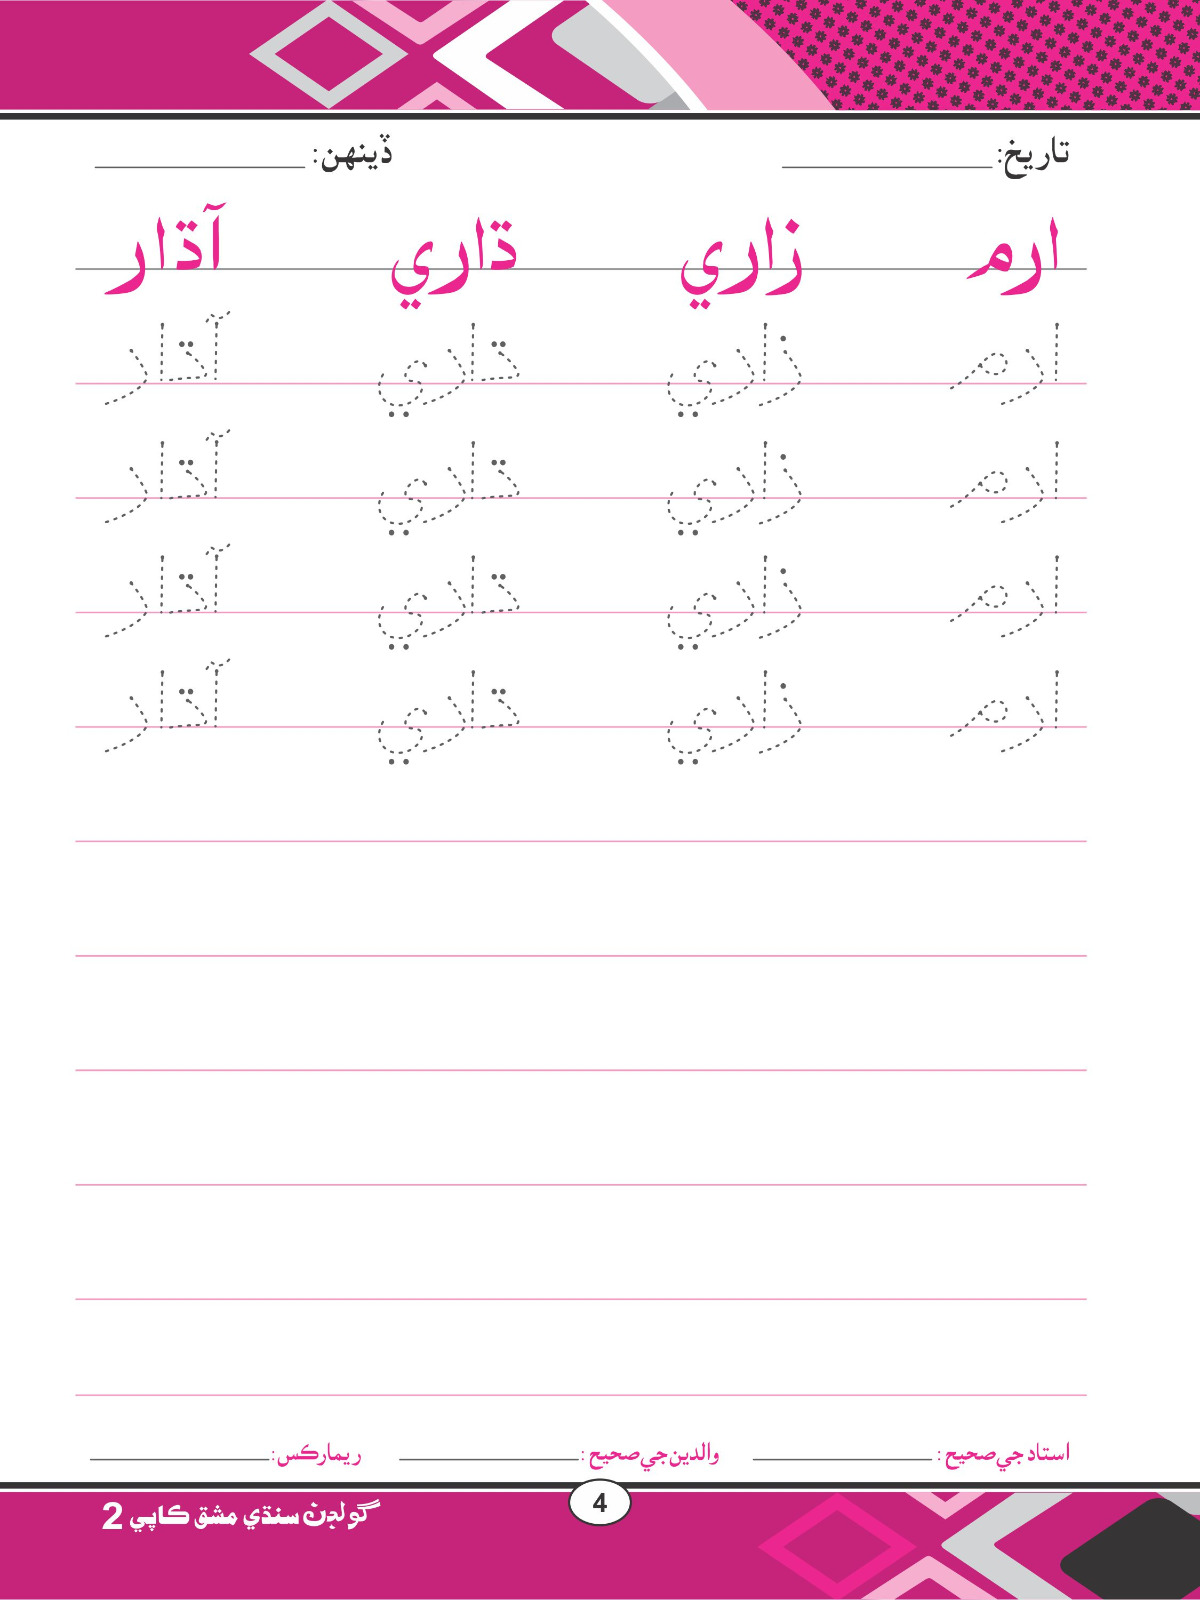 تاريخ: ڏينهن:
ارم زاري ڌاري آڌار
ارم زاري ڌاري آڌار
ارم زاري ڌاري آڌار
ارم زاري ڌاري آڌار
ارم زاري ڌاري آڌار
استاد جي صحيح: والدين جي صحيح: ريمارڪس:
4
گولڊن سنڌي مشق ڪاپي 2